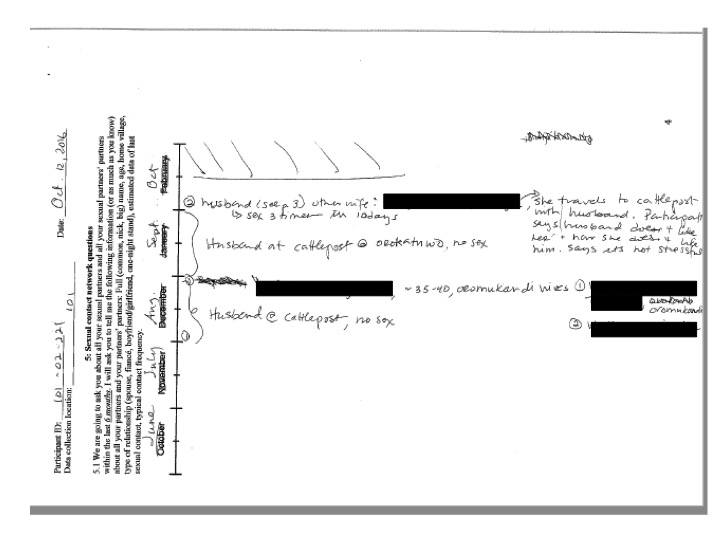 4
Participant ID: 101-02-221 Date: Oct. 12, 2016
Data collection location: 101
5: Sexual contact network questions
5.1 We are going to ask you about all your sexual partners and all your sexual partners' partners
within the last 6 months. I will ask you to tell me the following information (or as much as you know)
about all your partners and your partners' partners: Full (common, nick, big) name, age, home village,
type of relationship (spouse, fiancé, boyfriend/girlfriend, one-night stand), estimated date of last
sexual contact, typical contact frequency.
June July Aug. Sept. Oct
October November December January February
husband (see p 3) other wife:
↳ sex 3 times in 10days
she travels to cattlepost
with husband. Participant
says husband doesn't like
her + her she doesn't like
him. Says its not stressful
Husband at cattlepost @ no sex
~35-40, oromukandi wives ①
oromukandi
Husband @ cattlepost, no sex
②